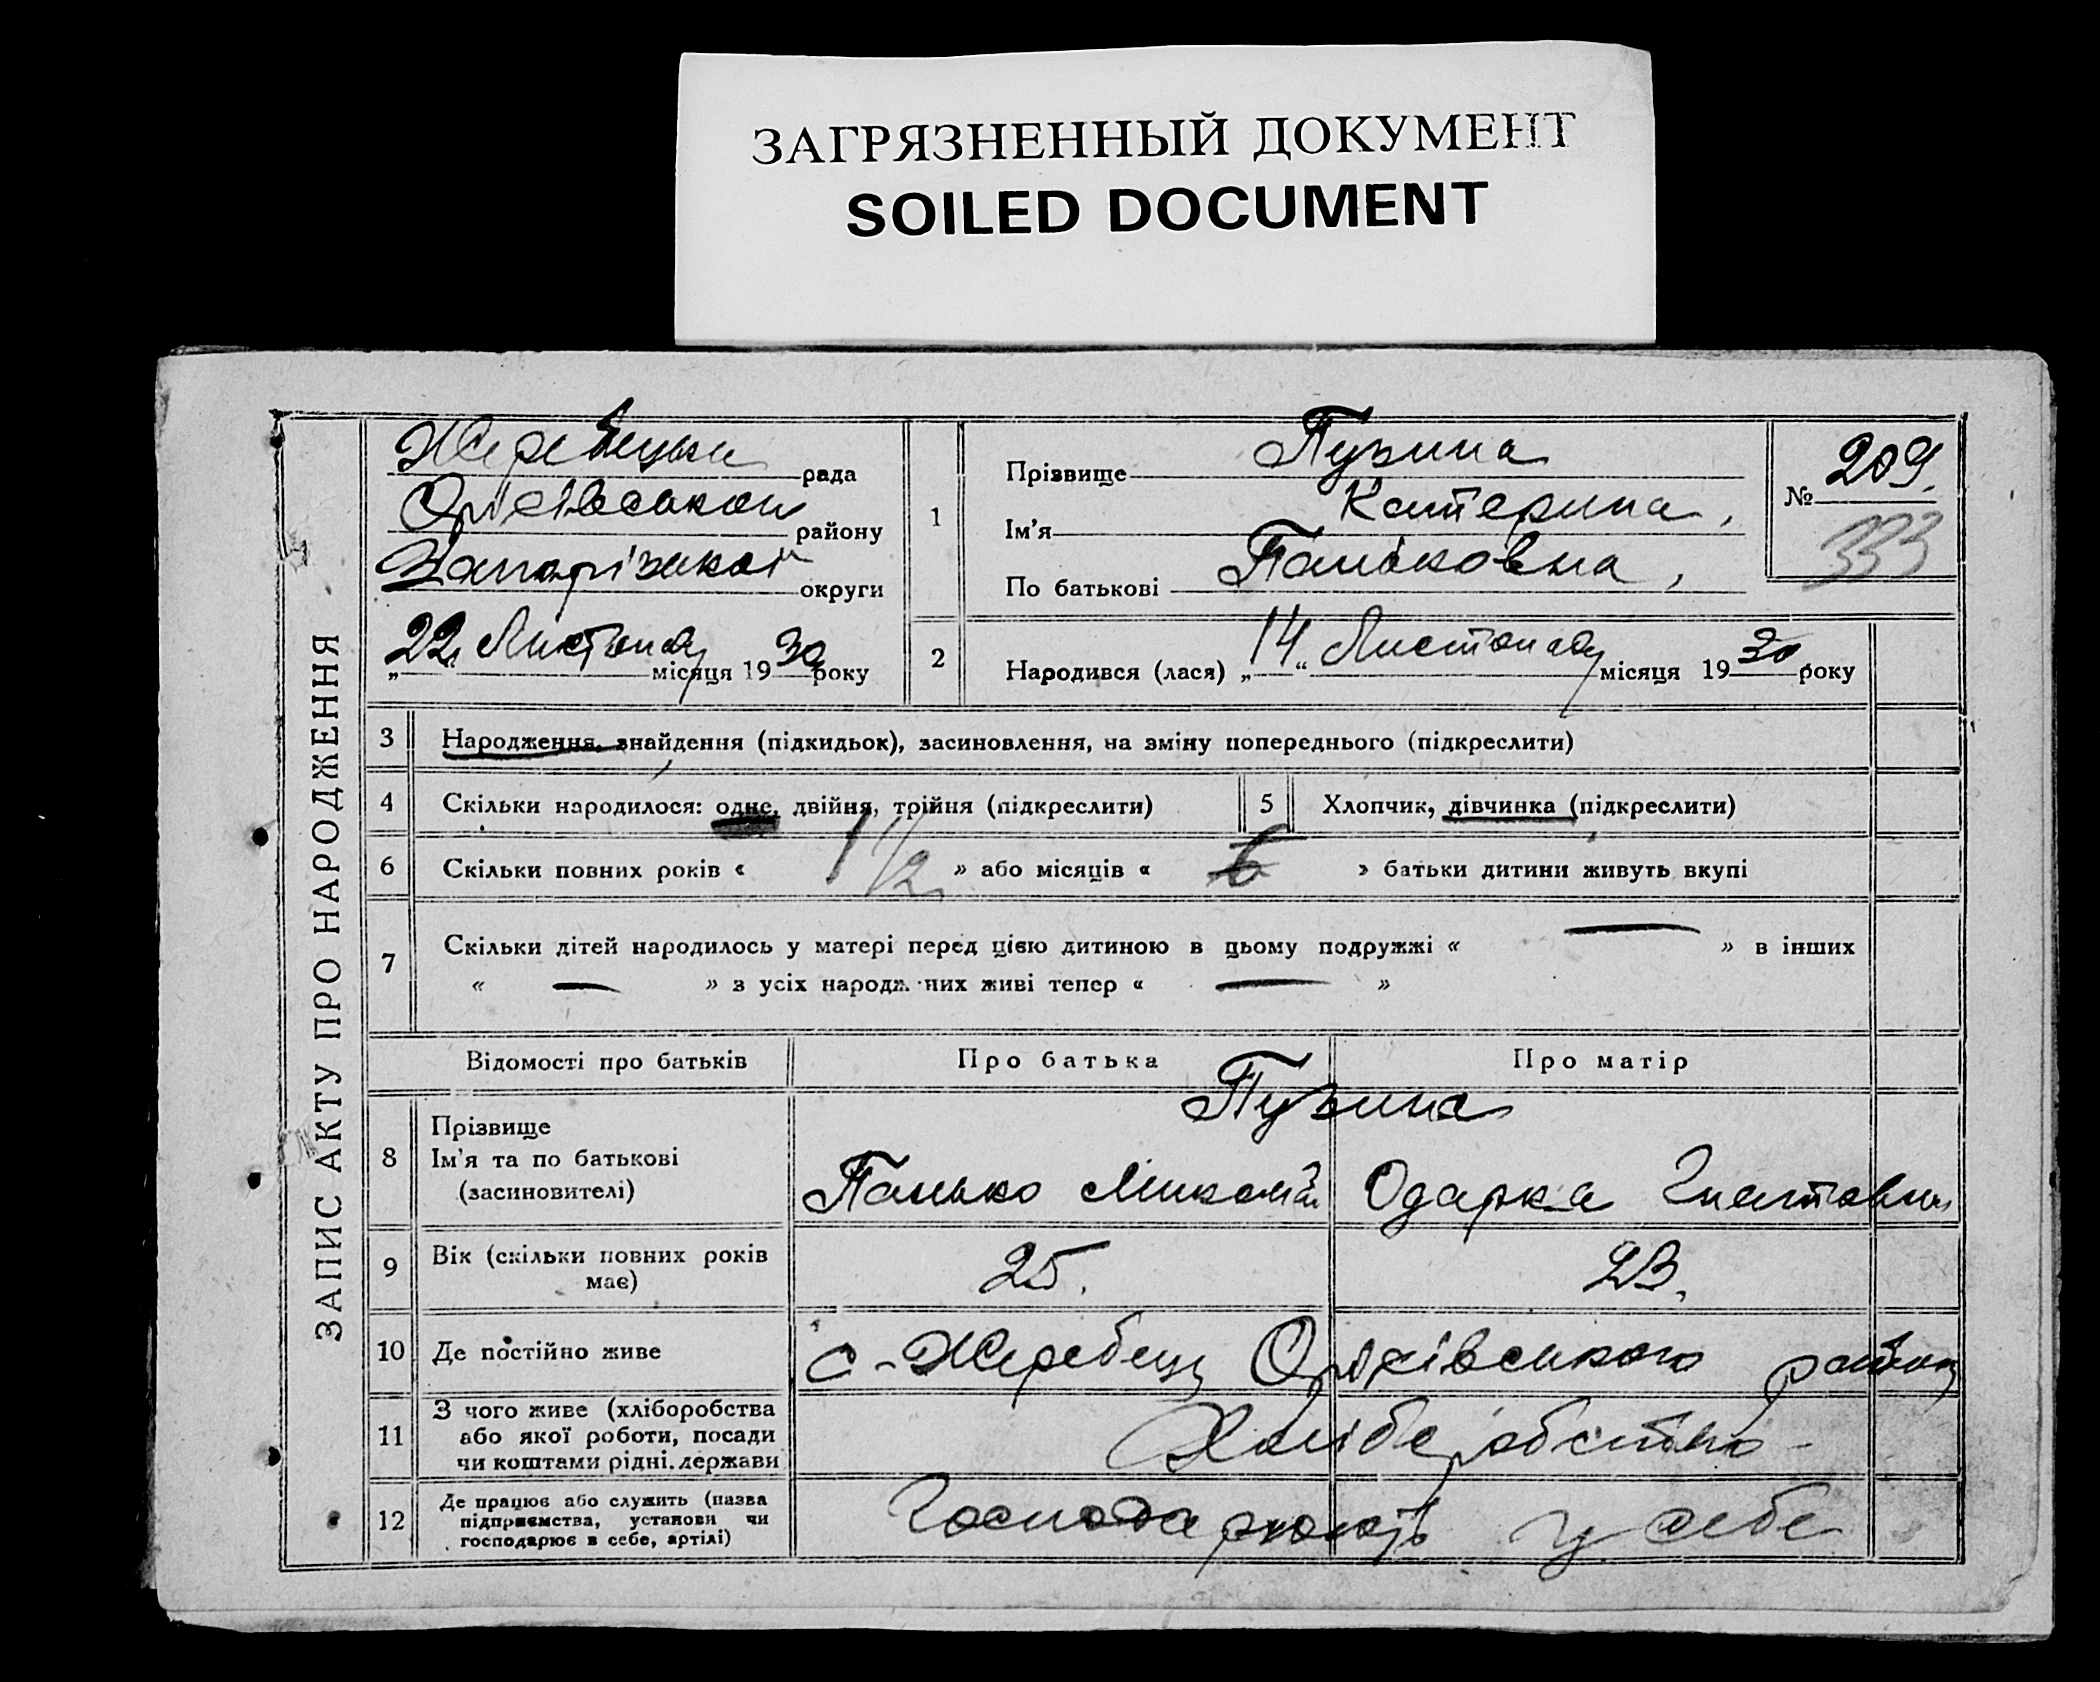 ЗАГРЯЗНЕННЫЙ ДОКУМЕНТ
SOILED DOCUMENT
ЗАПИС АКТУ ПРО НАРОДЖЕННЯ
Жеребецька рада
Оріхівського району
Запорізької округи
22 Листопаду місяця 1930 року
1 Прізвище Пузина
Ім'я Катерина,
По батькові Паньковна,
№ 209.
333
2 Народився (лася) „14“ Листопаду місяця 1930 року
3 Народження, знайдення (підкидьок), засиновлення, на зміну попереднього (підкреслити)
4 Скільки народилося: одне, двійня, трійня (підкреслити) 5 Хлопчик, дівчинка (підкреслити)
6 Скільки повних років « 1 1/2 » або місяців « 6 » батьки дитини живуть вкупі
7 Скільки дітей народилось у матері перед цією дитиною в цьому подружжі « — » в інших
« — » з усіх народж них живі тепер « — »
Відомості про батьків Про батька Про матір
8 Прізвище Пузина
Ім'я та по батькові Панько Миколай Одарка Гнатовна
(засиновителі)
9 Вік (скільки повних років має) 25. 23.
10 Де постійно живе с-Жеребець Оріхівського району
11 З чого живе (хліборобства або якої роботи, посади чи коштами рідні. держави Хліборобство-
12 Де працює або служить (назва підприємства, установи чи господарює в себе, артілі) Господарюють у себе